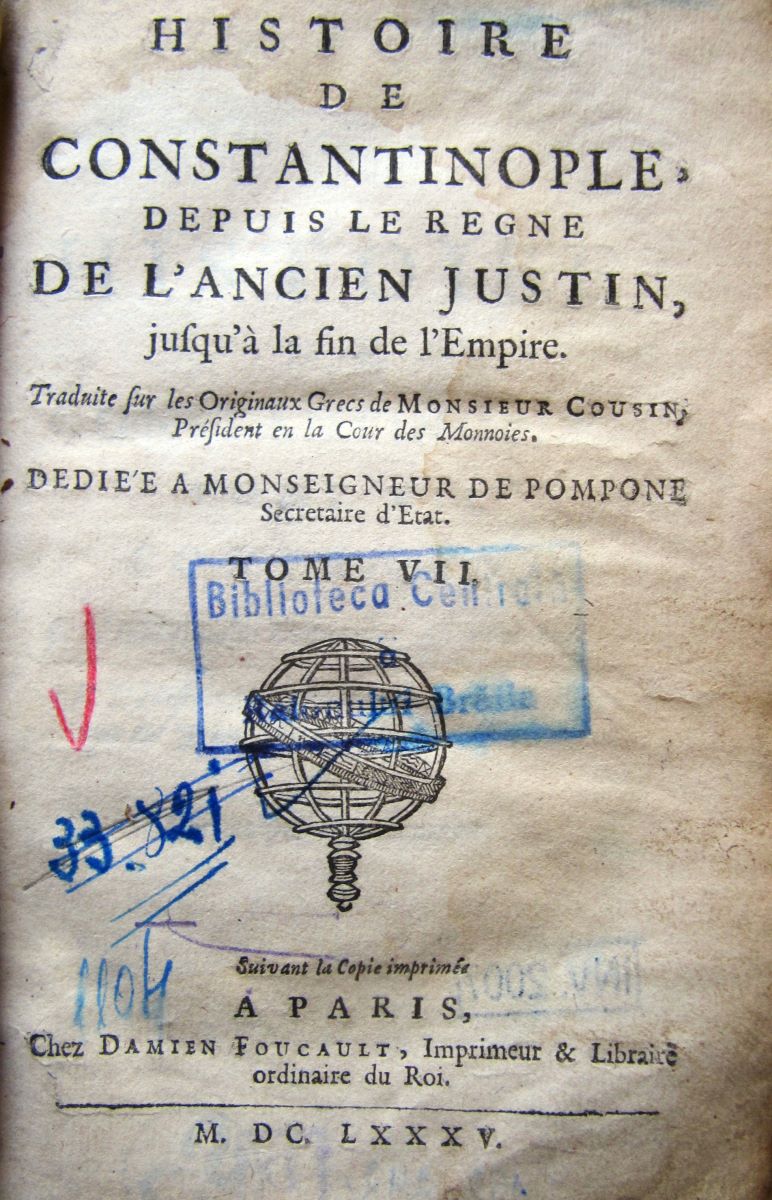 HISTOIRE
DE
CONSTANTINOPLE,
DEPUIS LE REGNE
DE L'ANCIEN JUSTIN,
juſqu'à la fin de l'Empire.
Traduite ſur les Originaux Grecs de MONSIEUR COUSIN,
Préſident en la Cour des Monnoies.
DEDIE'E A MONSEIGNEUR DE POMPONE
Secretaire d'Etat.
TOME VII.
Biblioteca Centrală
a
Brăila
33.821
1104
Suivant la Copie imprimée
A PARIS,
Chez DAMIEN FOUCAULT, Imprimeur & Libraire
ordinaire du Roi.
M. DC. LXXXV.